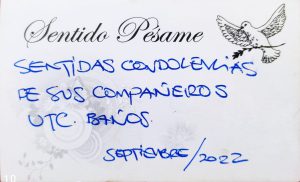 Sentido Pésame
SENTIDAS CONDOLENCIAS
DE SUS COMPAÑEIROS
UTC. BAÑOS.
SEPTIEMBRE/2022